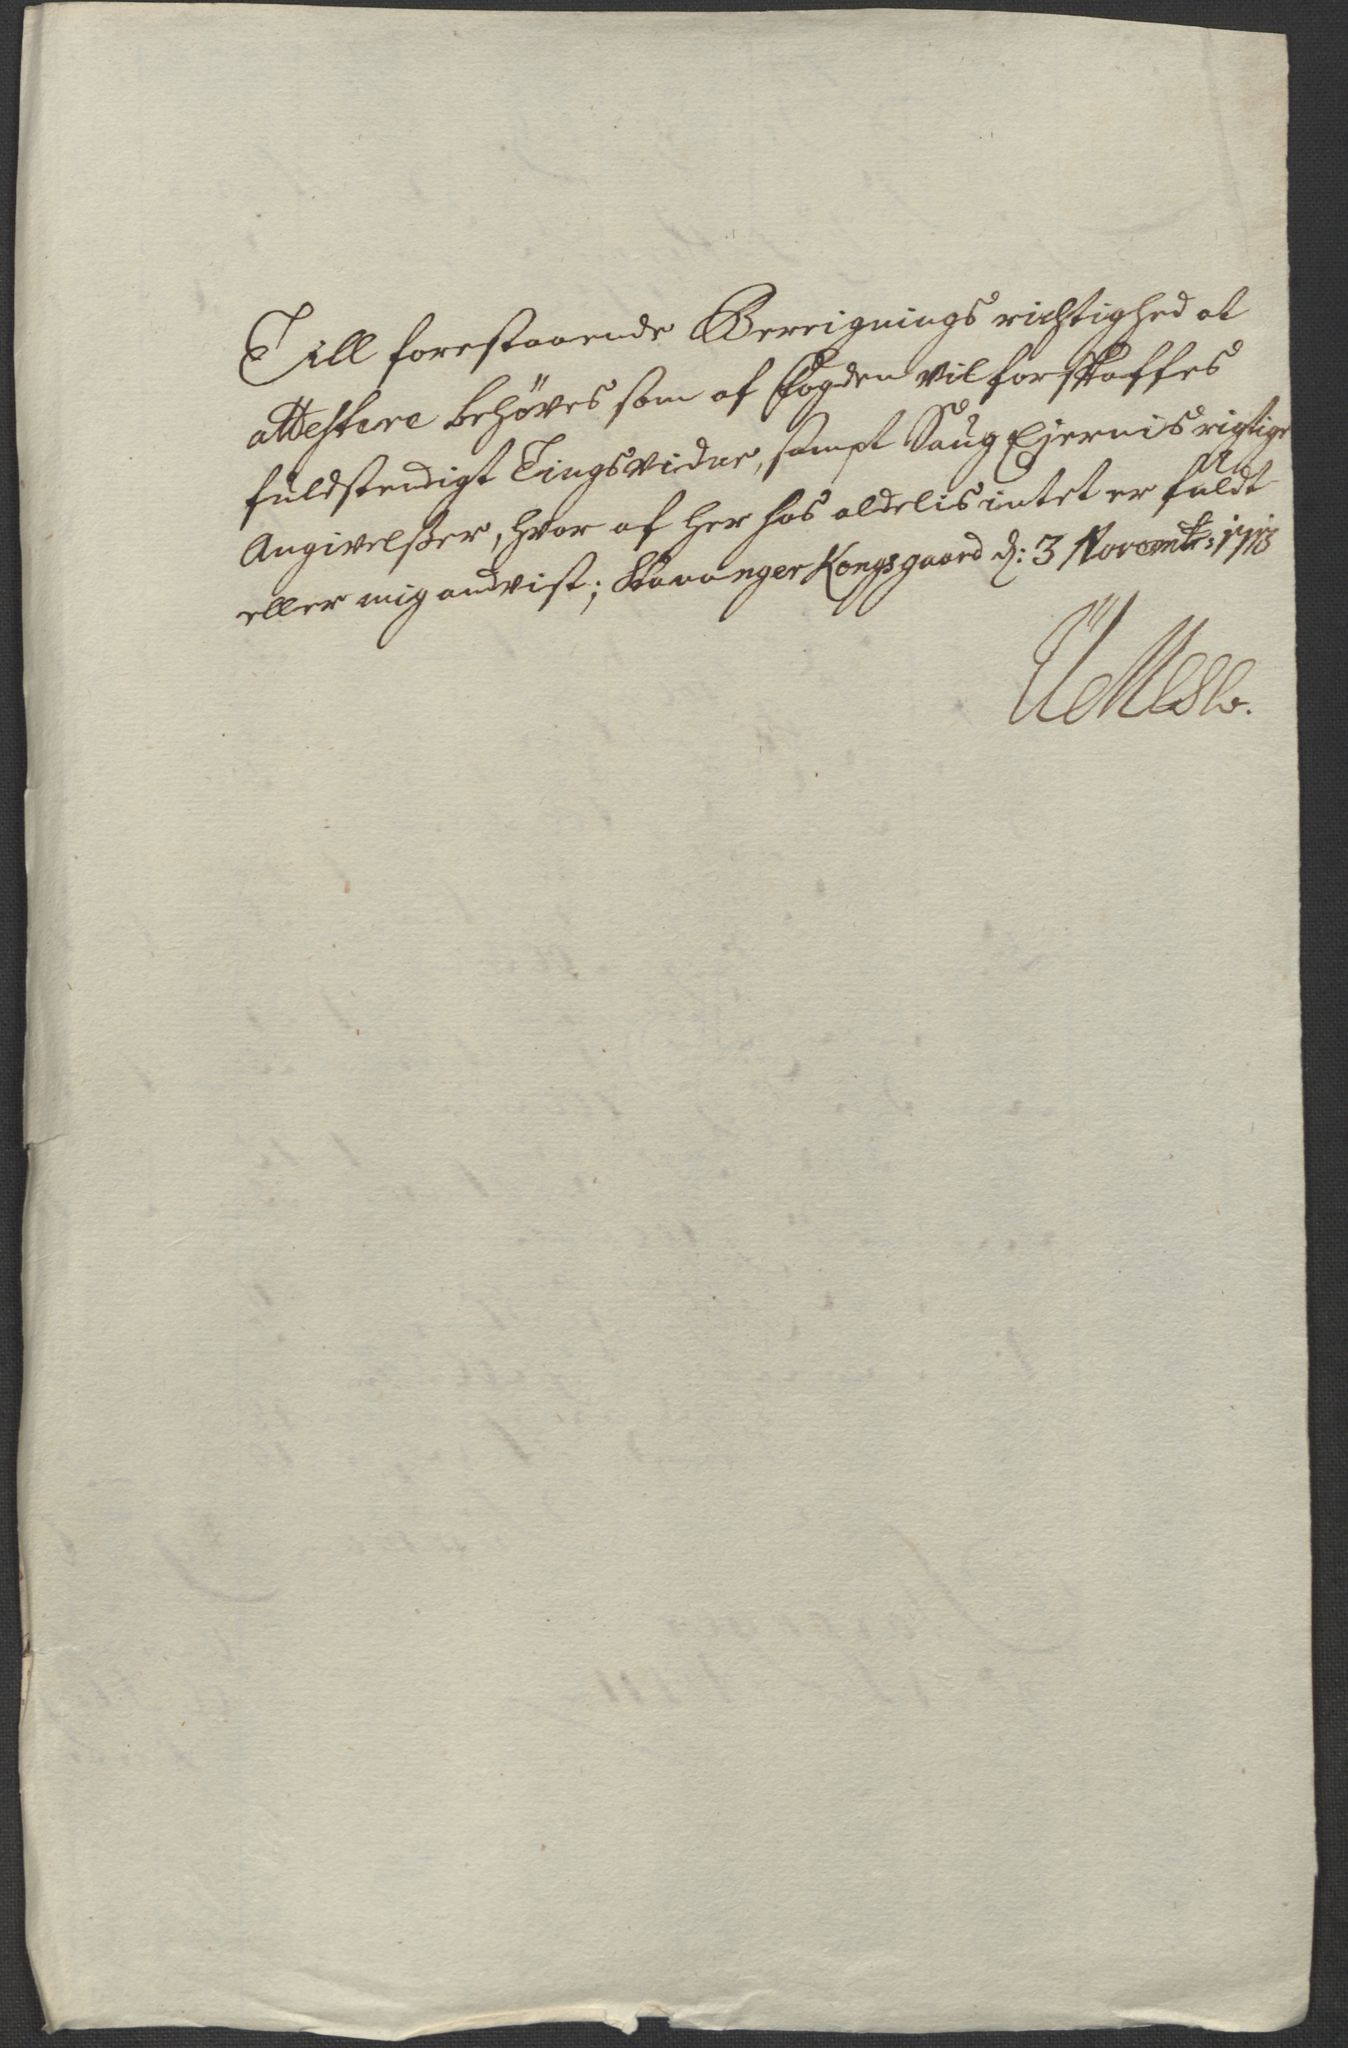 Till forestaaende Bereignings richtighed at
attestere behöves som af fogden vil forskaffes
fuldstendigt Tingsvidne, sampt Saug Ejernis rigtige
Angivelser, hvor af her hos aldelis intet er fuldt
eller mig andvist; Stavanger Kongsgaard d: 3 Novembr: 1713